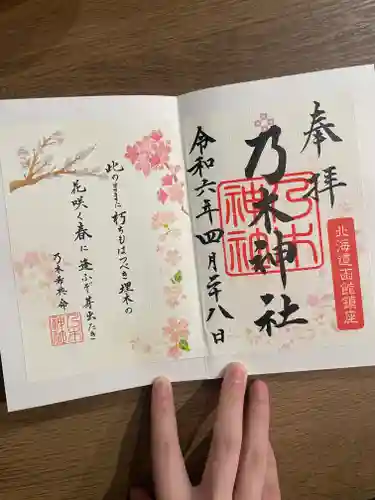 奉拝
乃木神社
乃木
神社
北海道函館鎮座
令和六年四月二十八日
此のままに 朽ちもはつべき 埋木の
花咲く春に 逢ふぞ芽出たき
乃木希典命
乃木
神社